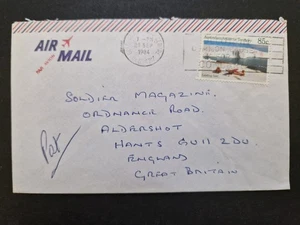 AIR MAIL
PAR AVION
1984
85c
SOLDIER MAGAZINE.
ORDNANCE ROAD.
ALDERSHOT
HANTS GU11 2DU.
ENGLAND
GREAT BRITAIN
Pat